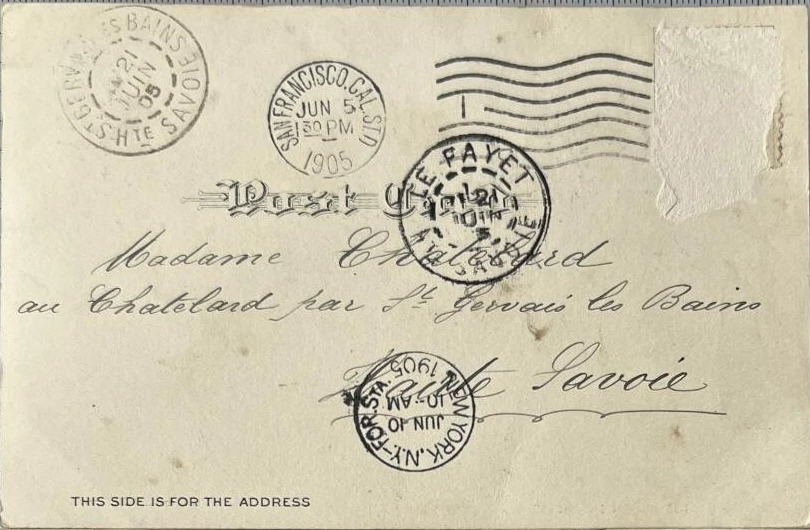 ST GERVAIS LES BAINS HTE SAVOIE
21
JUIN
05
SAN FRANCISCO, CAL. STA
JUN 5
130 PM
1905
1
LE FAYET
21
JUIN
HTE SAVOIE
Post Card
Madame Chatelard
au Chatelard par St Gervais les Bains
Haute Savoie
NEW YORK, N.Y.-FOR. STA.
JUN 10
10-AM
1905
THIS SIDE IS FOR THE ADDRESS